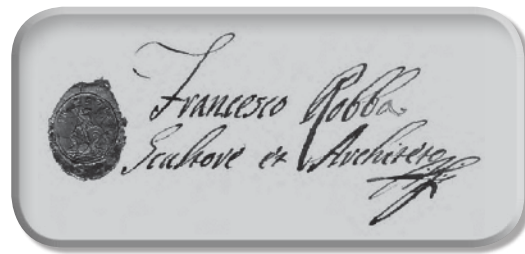 Francesco Robba
Scultore et Architeto